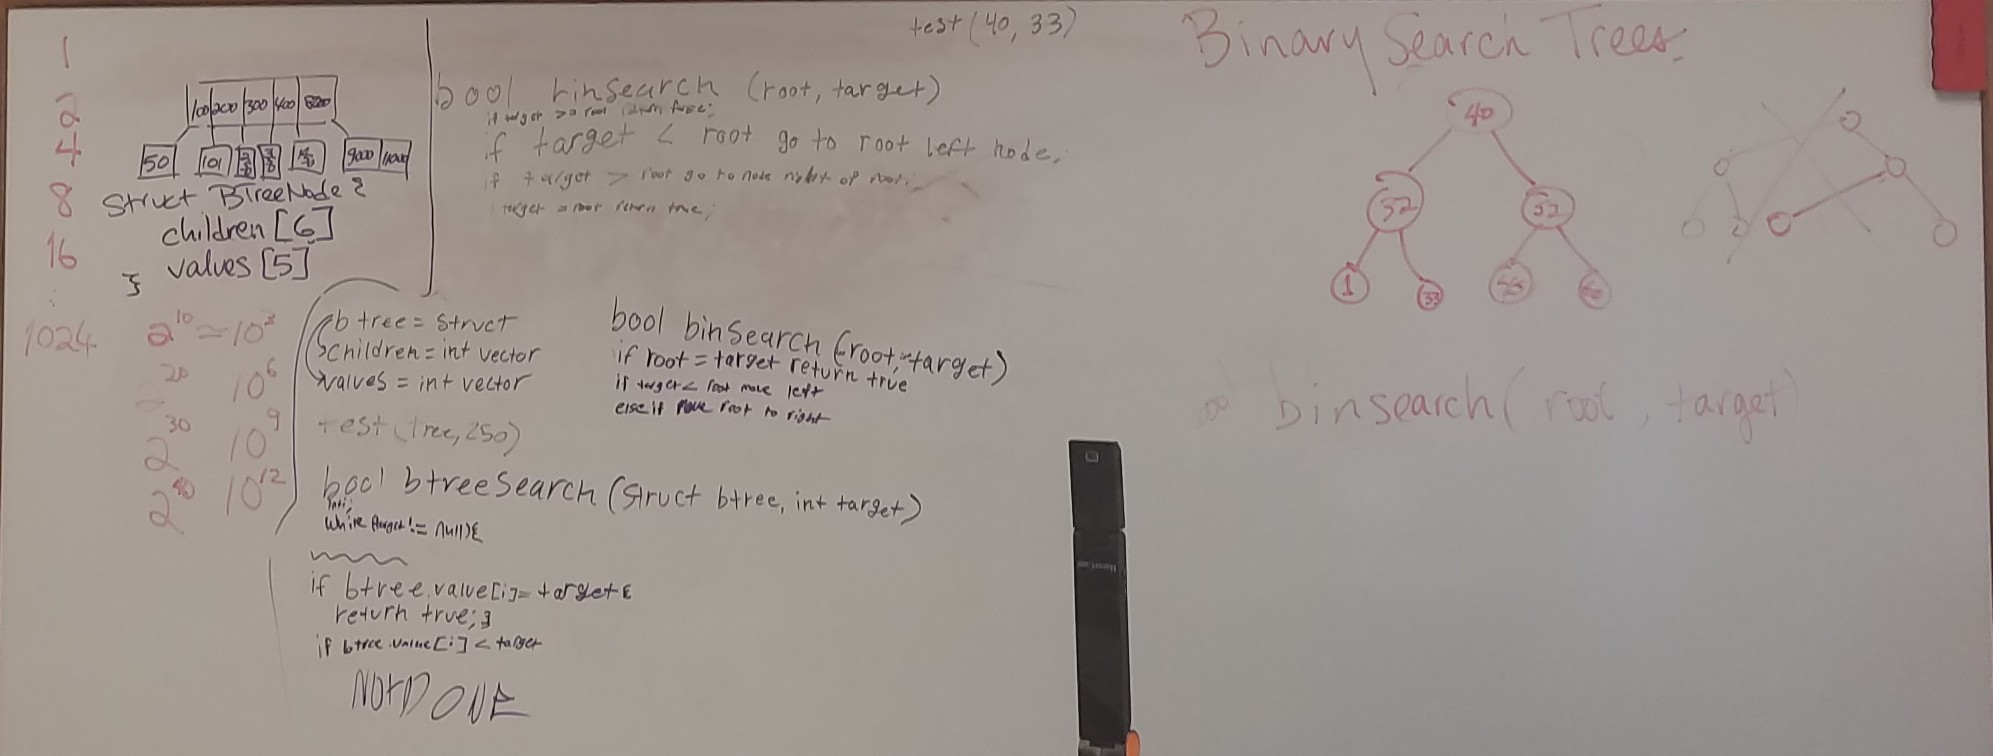 1
2
4
8
16
1024
2^10 ≈ 10^3
20 10^6
2^30 10^9
2^40 10^12
100 200 300 400 800
50 101 9000
Struct BTreeNode {
children [6]
values [5]
}
test (40, 33)
bool binsearch (root, target)
if target > root return false;
if target < root go to root left node,
if target > root go to node right of root.
target = root return true;
b tree = struct
children = int vector
values = int vector
test (tree, 250)
bool binSearch (root, target)
if root = target return true
if target < root move left
else if move root to right
bool btreeSearch (struct btree, int target)
int i;
while target != null) {
if btree.value[i] = target {
return true; }
if btree.value[i] < target
NOT DONE
Binary Search Trees
40
32 52
1 33 55
binsearch( root, target)